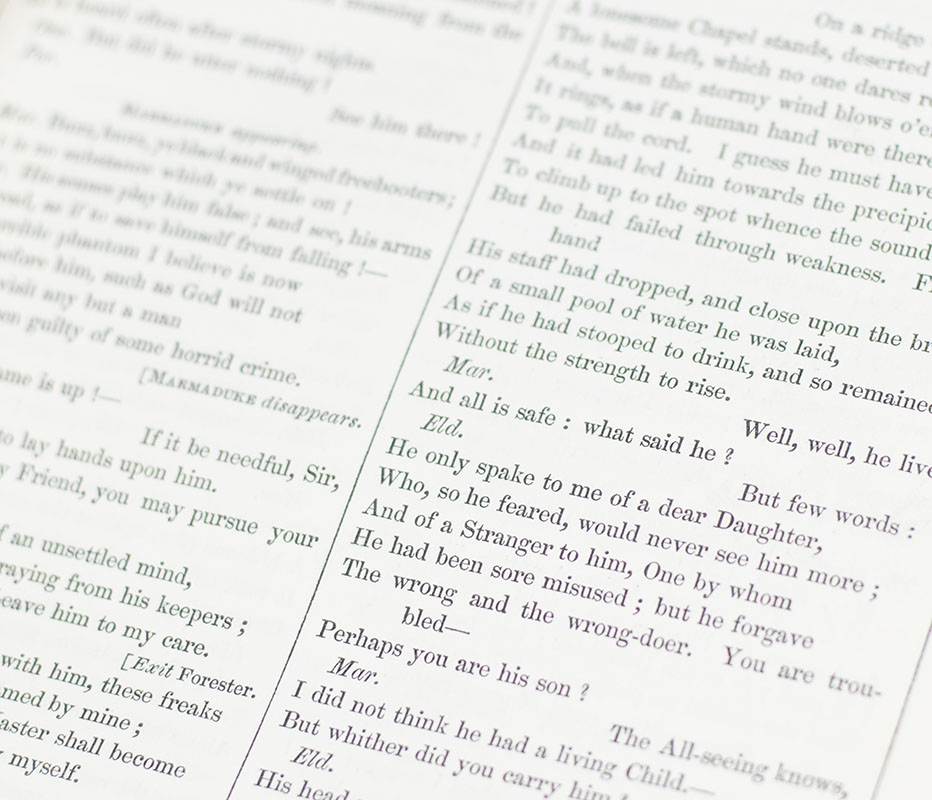 morning from the
is heard often after stormy nights.
But did he utter nothing !
See him there !
MARMADUKE appearing.
Mar. There, there, ye black and winged freebooters;
is no substance which ye settle on !
His senses play him false ; and see, his arms
as if to save himself from falling !—
terrible phantom I believe is now
before him, such as God will not
visit any but a man
guilty of some horrid crime.
[MARMADUKE disappears.
is up !—
If it be needful, Sir,
to lay hands upon him.
Friend, you may pursue your
an unsettled mind,
from his keepers ;
eave him to my care.
[Exit Forester.
with him, these freaks
med by mine ;
aster shall become
myself.
On a ridge
A lonesome Chapel stands, deserted
The bell is left, which no one dares
And, when the stormy wind blows o'er
It rings, as if a human hand were there
To pull the cord. I guess he must have
And it had led him towards the precipi
To climb up to the spot whence the sound
But he had failed through weakness.
hand
His staff had dropped, and close upon the br
Of a small pool of water he was laid,
As if he had stooped to drink, and so remained
Without the strength to rise.
Mar.
Well, well, he live
And all is safe : what said he ?
Eld.
But few words :
He only spake to me of a dear Daughter,
Who, so he feared, would never see him more ;
And of a Stranger to him, One by whom
He had been sore misused ; but he forgave
The wrong and the wrong-doer. You are trou-
bled—
Perhaps you are his son ?
Mar.
The All-seeing knows,
I did not think he had a living Child.—
But whither did you carry him ?
Eld.
His head